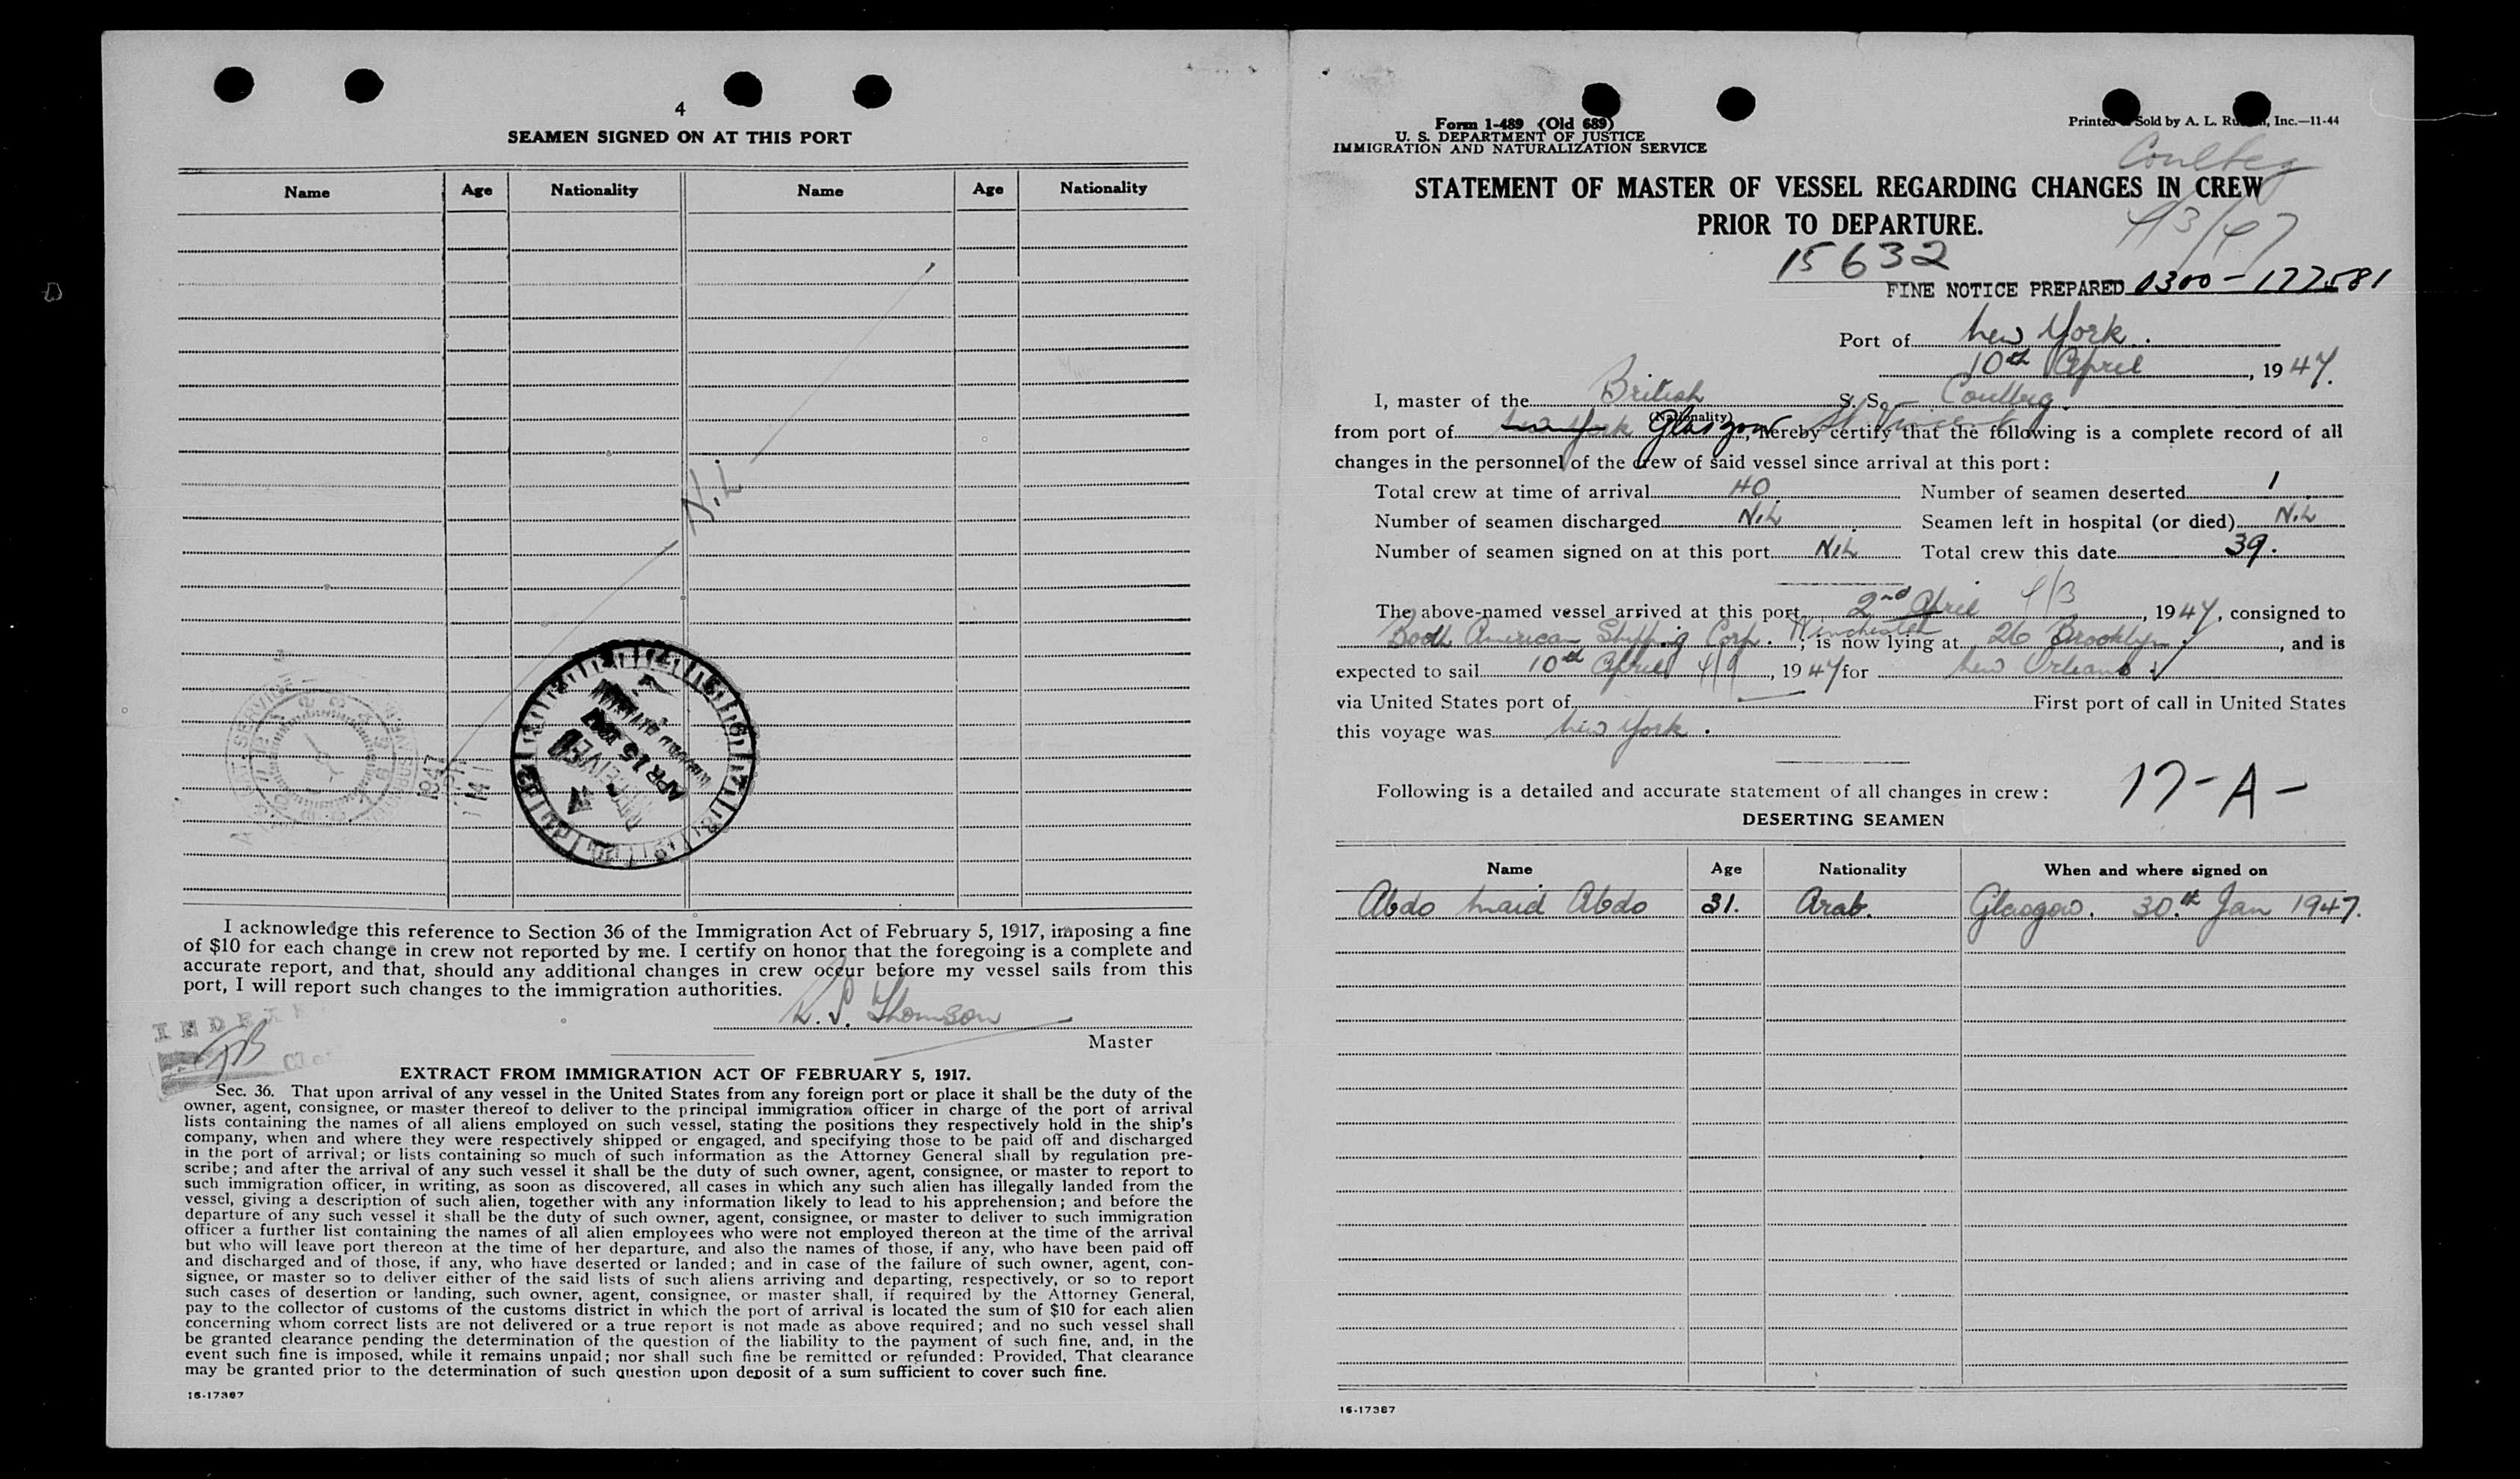 4
SEAMEN SIGNED ON AT THIS PORT
Name Age Nationality Name Age Nationality
Nil
RECEIVED
APR 15 1947
1947
I acknowledge this reference to Section 36 of the Immigration Act of February 5, 1917, imposing a fine
of $10 for each change in crew not reported by me. I certify on honor that the foregoing is a complete and
accurate report, and that, should any additional changes in crew occur before my vessel sails from this
port, I will report such changes to the immigration authorities.
Thomson
Master
EXTRACT FROM IMMIGRATION ACT OF FEBRUARY 5, 1917.
Sec. 36. That upon arrival of any vessel in the United States from any foreign port or place it shall be the duty of the
owner, agent, consignee, or master thereof to deliver to the principal immigration officer in charge of the port of arrival
lists containing the names of all aliens employed on such vessel, stating the positions they respectively hold in the ship's
company, when and where they were respectively shipped or engaged, and specifying those to be paid off and discharged
in the port of arrival; or lists containing so much of such information as the Attorney General shall by regulation pre-
scribe; and after the arrival of any such vessel it shall be the duty of such owner, agent, consignee, or master to report to
such immigration officer, in writing, as soon as discovered, all cases in which any such alien has illegally landed from the
vessel, giving a description of such alien, together with any information likely to lead to his apprehension; and before the
departure of any such vessel it shall be the duty of such owner, agent, consignee, or master to deliver to such immigration
officer a further list containing the names of all alien employees who were not employed thereon at the time of the arrival
but who will leave port thereon at the time of her departure, and also the names of those, if any, who have been paid off
and discharged and of those, if any, who have deserted or landed; and in case of the failure of such owner, agent, con-
signee, or master so to deliver either of the said lists of such aliens arriving and departing, respectively, or so to report
such cases of desertion or landing, such owner, agent, consignee, or master shall, if required by the Attorney General,
pay to the collector of customs of the customs district in which the port of arrival is located the sum of $10 for each alien
concerning whom correct lists are not delivered or a true report is not made as above required; and no such vessel shall
be granted clearance pending the determination of the question of the liability to the payment of such fine, and, in the
event such fine is imposed, while it remains unpaid; nor shall such fine be remitted or refunded: Provided, That clearance
may be granted prior to the determination of such question upon deposit of a sum sufficient to cover such fine.
16-17387
Form 1-489 (Old 689)
U. S. DEPARTMENT OF JUSTICE
IMMIGRATION AND NATURALIZATION SERVICE
Printed Sold by A. L. Inc.—11-44
Coulbeg
4/3/47
STATEMENT OF MASTER OF VESSEL REGARDING CHANGES IN CREW
PRIOR TO DEPARTURE.
15632
FINE NOTICE PREPARED 0300-177581
Port of New York.
10th April, 1947.
I, master of the British S. S. Coulbeg.
(Nationality)
from port of New York Glasgow St Vincent, hereby certify that the following is a complete record of all
changes in the personnel of the crew of said vessel since arrival at this port:
Total crew at time of arrival 40 Number of seamen deserted 1
Number of seamen discharged Nil Seamen left in hospital (or died) Nil
Number of seamen signed on at this port Nil Total crew this date 39.
The above-named vessel arrived at this port 2nd April 4/3, 1947, consigned to
Booth American Shipping Corp. Winchester, is now lying at 26 Brooklyn, and is
expected to sail 10th April 4/9, 1947 for New Orleans
via United States port of — First port of call in United States
this voyage was New York.
Following is a detailed and accurate statement of all changes in crew: 17-A-
DESERTING SEAMEN
Name Age Nationality When and where signed on
Abdo Abdo 31. Arab. Glasgow. 30th Jan 1947.
16-17387